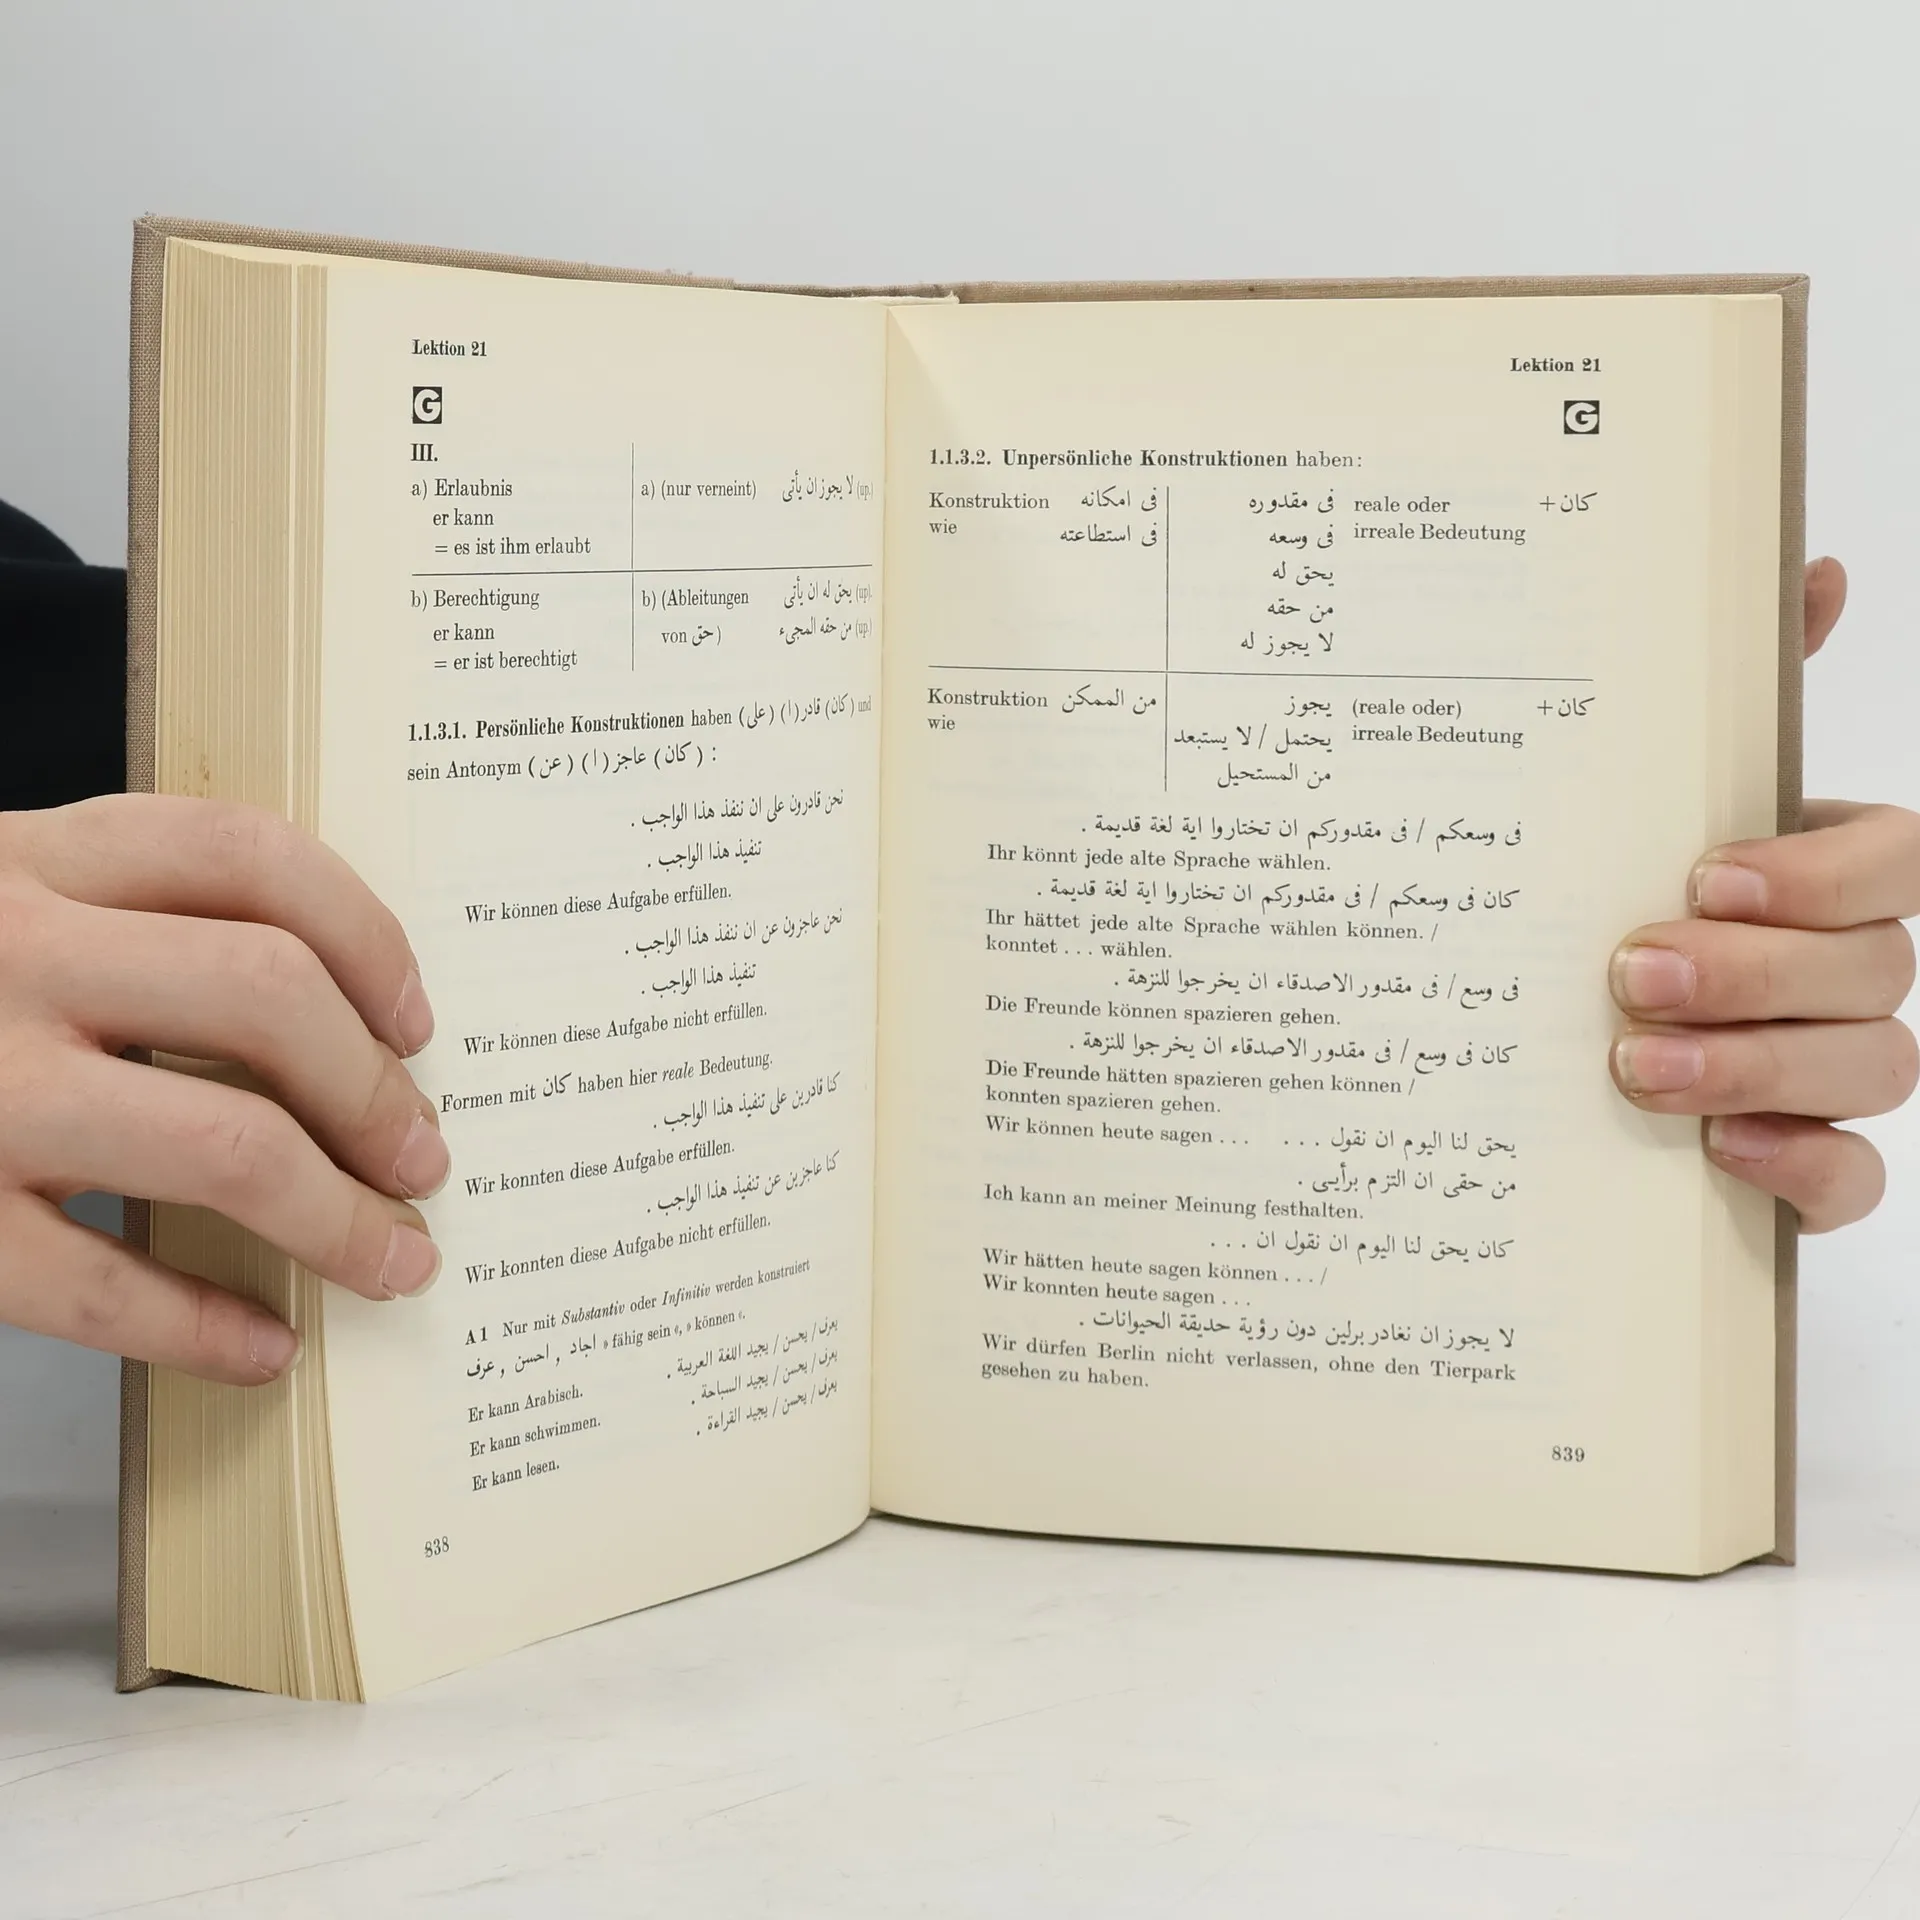 Lektion 21
G
III.
a) Erlaubnis
er kann
= es ist ihm erlaubt
a) (nur verneint) لا يجوز ان يأتى (up.)
b) Berechtigung
er kann
= er ist berechtigt
b) (Ableitungen يحق له ان يأتى (up).
von حق) من حقه المجىء (up.)
1.1.3.1. Persönliche Konstruktionen haben (كان) قادر(ا) (على) und
sein Antonym (كان) عاجز(ا) (عن) :
نحن قادرون على ان ننفذ هذا الواجب .
تنفيذ هذا الواجب .
Wir können diese Aufgabe erfüllen.
نحن عاجزون عن ان ننفذ هذا الواجب .
تنفيذ هذا الواجب .
Wir können diese Aufgabe nicht erfüllen.
Formen mit كان haben hier reale Bedeutung.
كنا قادرين على تنفيذ هذا الواجب .
Wir konnten diese Aufgabe erfüllen.
كنا عاجزين عن تنفيذ هذا الواجب .
Wir konnten diese Aufgabe nicht erfüllen.
A 1 Nur mit Substantiv oder Infinitiv werden konstruiert
عرف , احسن , اجاد » fähig sein «, » können «.
يعرف / يحسن / يجيد اللغة العربية .
Er kann Arabisch.
يعرف / يحسن / يجيد السباحة .
Er kann schwimmen.
يعرف / يحسن / يجيد القراءة .
Er kann lesen.
838
Lektion 21
G
1.1.3.2. Unpersönliche Konstruktionen haben:
Konstruktion فى امكانه
wie فى استطاعته
فى مقدوره
فى وسعه
يحق له
من حقه
لا يجوز له
reale oder
irreale Bedeutung
كان +
Konstruktion من الممكن
wie
يجوز
يحتمل / لا يستبعد
من المستحيل
(reale oder)
irreale Bedeutung
كان +
فى وسعكم / فى مقدوركم ان تختاروا اية لغة قديمة .
Ihr könnt jede alte Sprache wählen.
كان فى وسعكم / فى مقدوركم ان تختاروا اية لغة قديمة .
Ihr hättet jede alte Sprache wählen können. /
konntet . . . wählen.
فى وسع / فى مقدور الاصدقاء ان يخرجوا للنزهة .
Die Freunde können spazieren gehen.
كان فى وسع / فى مقدور الاصدقاء ان يخرجوا للنزهة .
Die Freunde hätten spazieren gehen können /
konnten spazieren gehen.
Wir können heute sagen . . . يحق لنا اليوم ان نقول . . .
من حقى ان التزم برأيى .
Ich kann an meiner Meinung festhalten.
كان يحق لنا اليوم ان نقول ان . . .
Wir hätten heute sagen können . . . /
Wir konnten heute sagen . . .
لا يجوز ان نغادر برلين دون رؤية حديقة الحيوانات .
Wir dürfen Berlin nicht verlassen, ohne den Tierpark
gesehen zu haben.
839